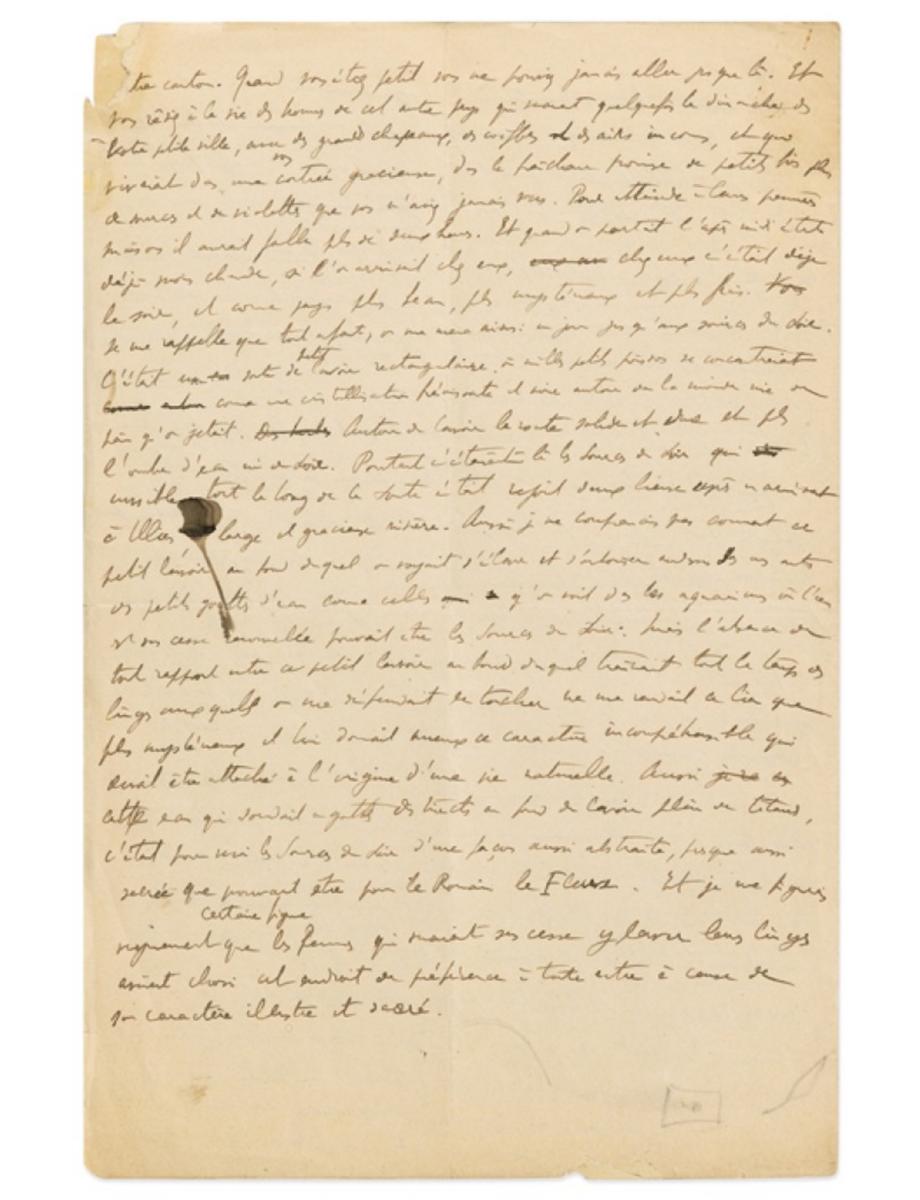 tre canton. Quand vous étiez petit vous ne pouviez jamais aller jusque là. Et
vous rêviez à la vie des hommes de cet autre pays qui venaient quelquefois le dimanche dans
votre petite ville, avec des grands chapeaux, des coiffes et des airs inconnus, et qui
vivaient dans une contrée gracieuse, dans la fraîcheur promise de petits bois
de mures et de violettes que vous n'aviez jamais vus. Pour atteindre à leurs
maisons il aurait fallu plus de deux heures. Et quand on partait l'après midi d'été
déjà moins chaude, si l'on arrivait chez eux, chez eux c'était déjà
le soir, et comme pays plus beau, plus mystérieux et plus frais. Vous
Je me rappelle que tout enfant, on me mena ainsi un jour jusqu'aux sources du Loir.
C'était une sorte de petit lavoir rectangulaire où mille petits poissons se concentraient
comme une cristallisation frémissante et noire autour de la moindre mie de
pain qu'on jetait. Autour du lavoir la route solide et dure et plus
l'ombre d'eau ni de Loir. Pourtant c'étaient là les Sources du Loir qui
tout le long de la route à deux lieues après
à Illiers large et gracieuse rivière. Aussi je ne comprenais pas comment ce
petit lavoir au fond duquel on voyait s'élever et
ces petites gouttes d'eau comme celles qu'on voit dans les aquariums où l'eau
est sans cesse renouvelée pouvait être les Sources du Loir. Mais l'absence de
tout rapport entre ce petit lavoir au bord duquel traînaient tout le temps des
linges auxquels on me défendait de toucher ne me rendait ce lieu que
plus mystérieux et lui donnait mieux ce caractère incompréhensible qui
devait être attaché à l'origine d'une vie naturelle. Aussi
cette eau qui sourdait en gouttes au fond du lavoir plein de têtards,
c'était pour moi les Sources du Loir d'une façon aussi abstraite, presque aussi
sacrée que pouvait être pour le Romain le Fleuve. Et je me figurais
certaine figure
vaguement que les femmes qui venaient sans cesse y laver leurs linges
avaient choisi cet endroit de préférence à toute autre à cause de
son caractère illustre et sacré.